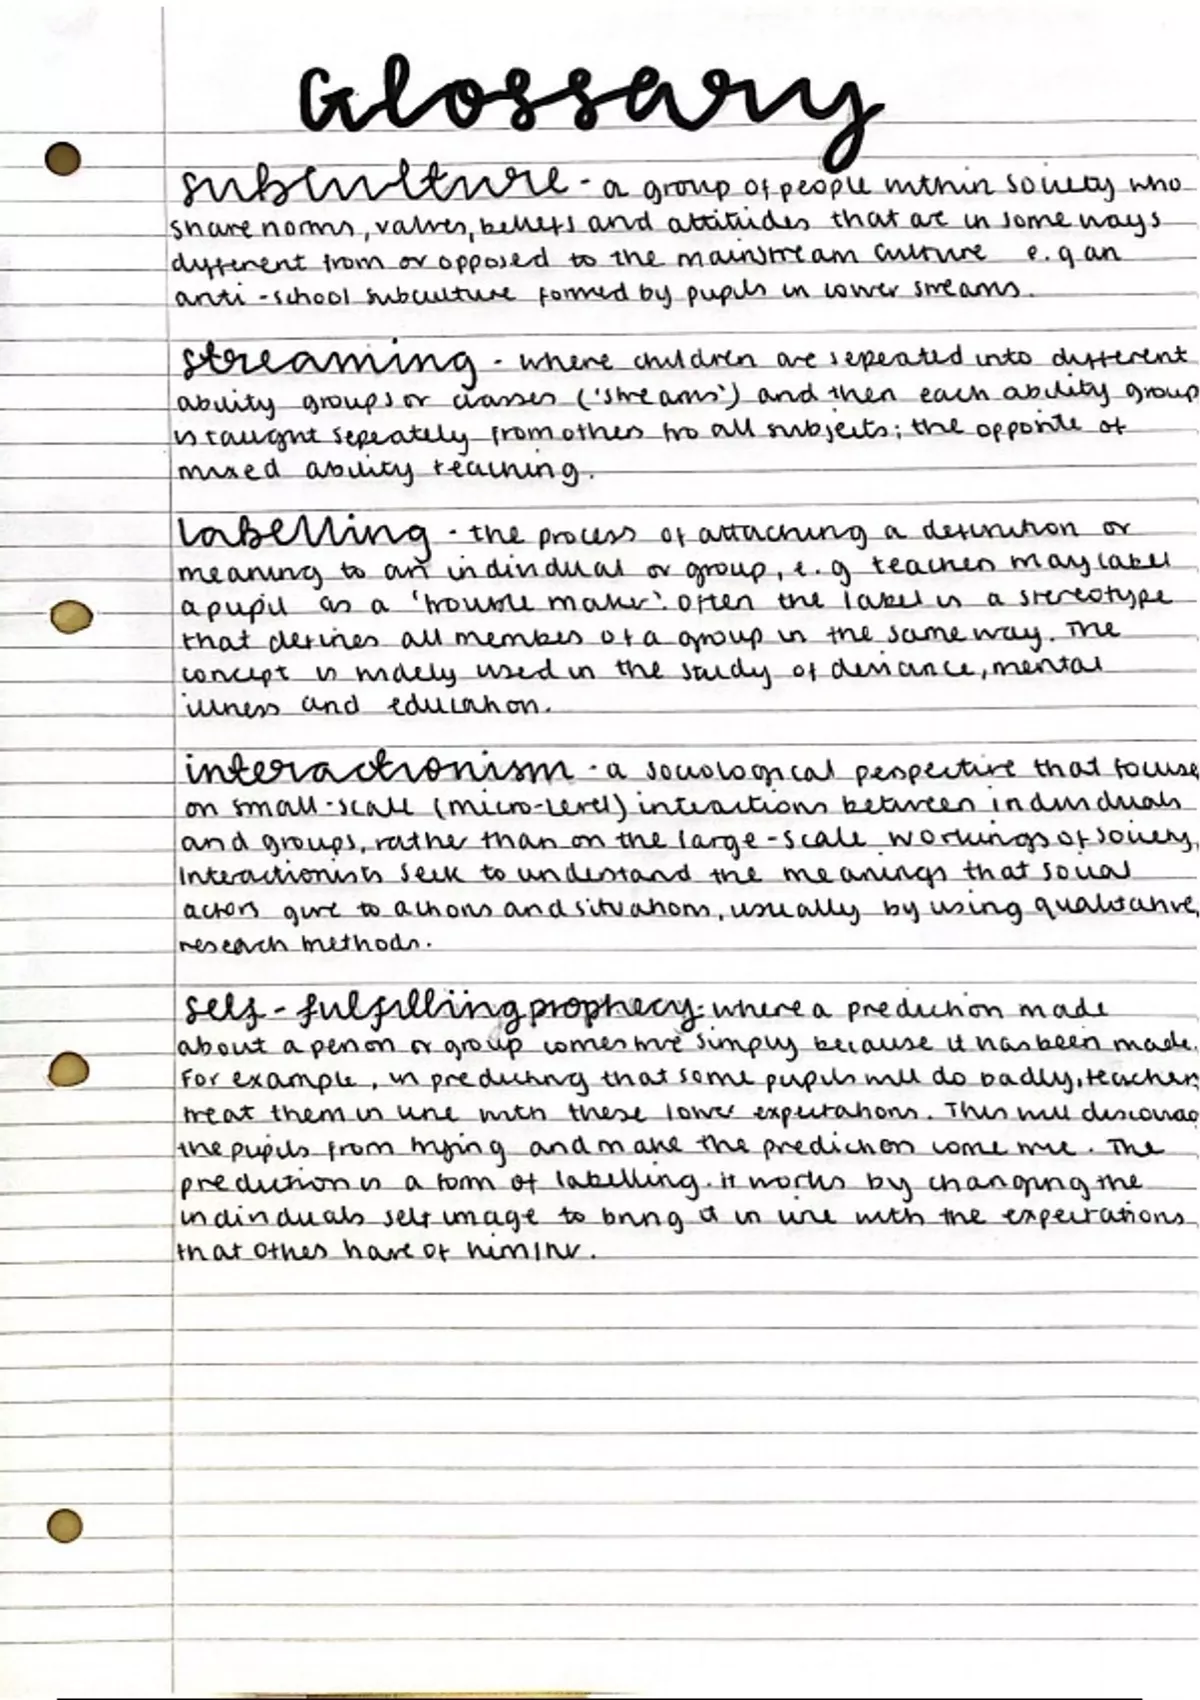 Glossary
subculture - a group of people within society who
share norms, values, beliefs and attitudes that are in some ways
different from or opposed to the mainstream culture e.g an
anti-school subculture formed by pupils in lower streams.
streaming - where children are sepeated into different
ability groups or classes ('streams') and then each ability group
is taught sepeately from others fro all subjects; the opposite of
mixed ability teaching.
labelling - the process of attaching a definition or
meaning to an individual or group, e.g teachers may label
a pupil as a 'trouble maker'. Often the label is a stereotype
that defines all members of a group in the same way. The
concept is widely used in the study of deviance, mental
illness and education.
interactionism - a sociological perspective that focuse
on small-scale (micro-level) interactions between individuals
and groups, rather than on the large-scale workings of society.
Interactionists seek to understand the meanings that social
actors give to actions and situations, usually by using qualitative
research methods.
self-fulfilling prophecy - where a prediction made
about a person or group comes true simply because it has been made.
For example, in predicting that some pupils will do badly, teachers
treat them in line with these lower expectations. This will discourag
the pupils from trying and make the prediction come true. The
prediction is a form of labelling. it works by changing the
individuals self image to bring it in line with the expectations
that others have of him/her.